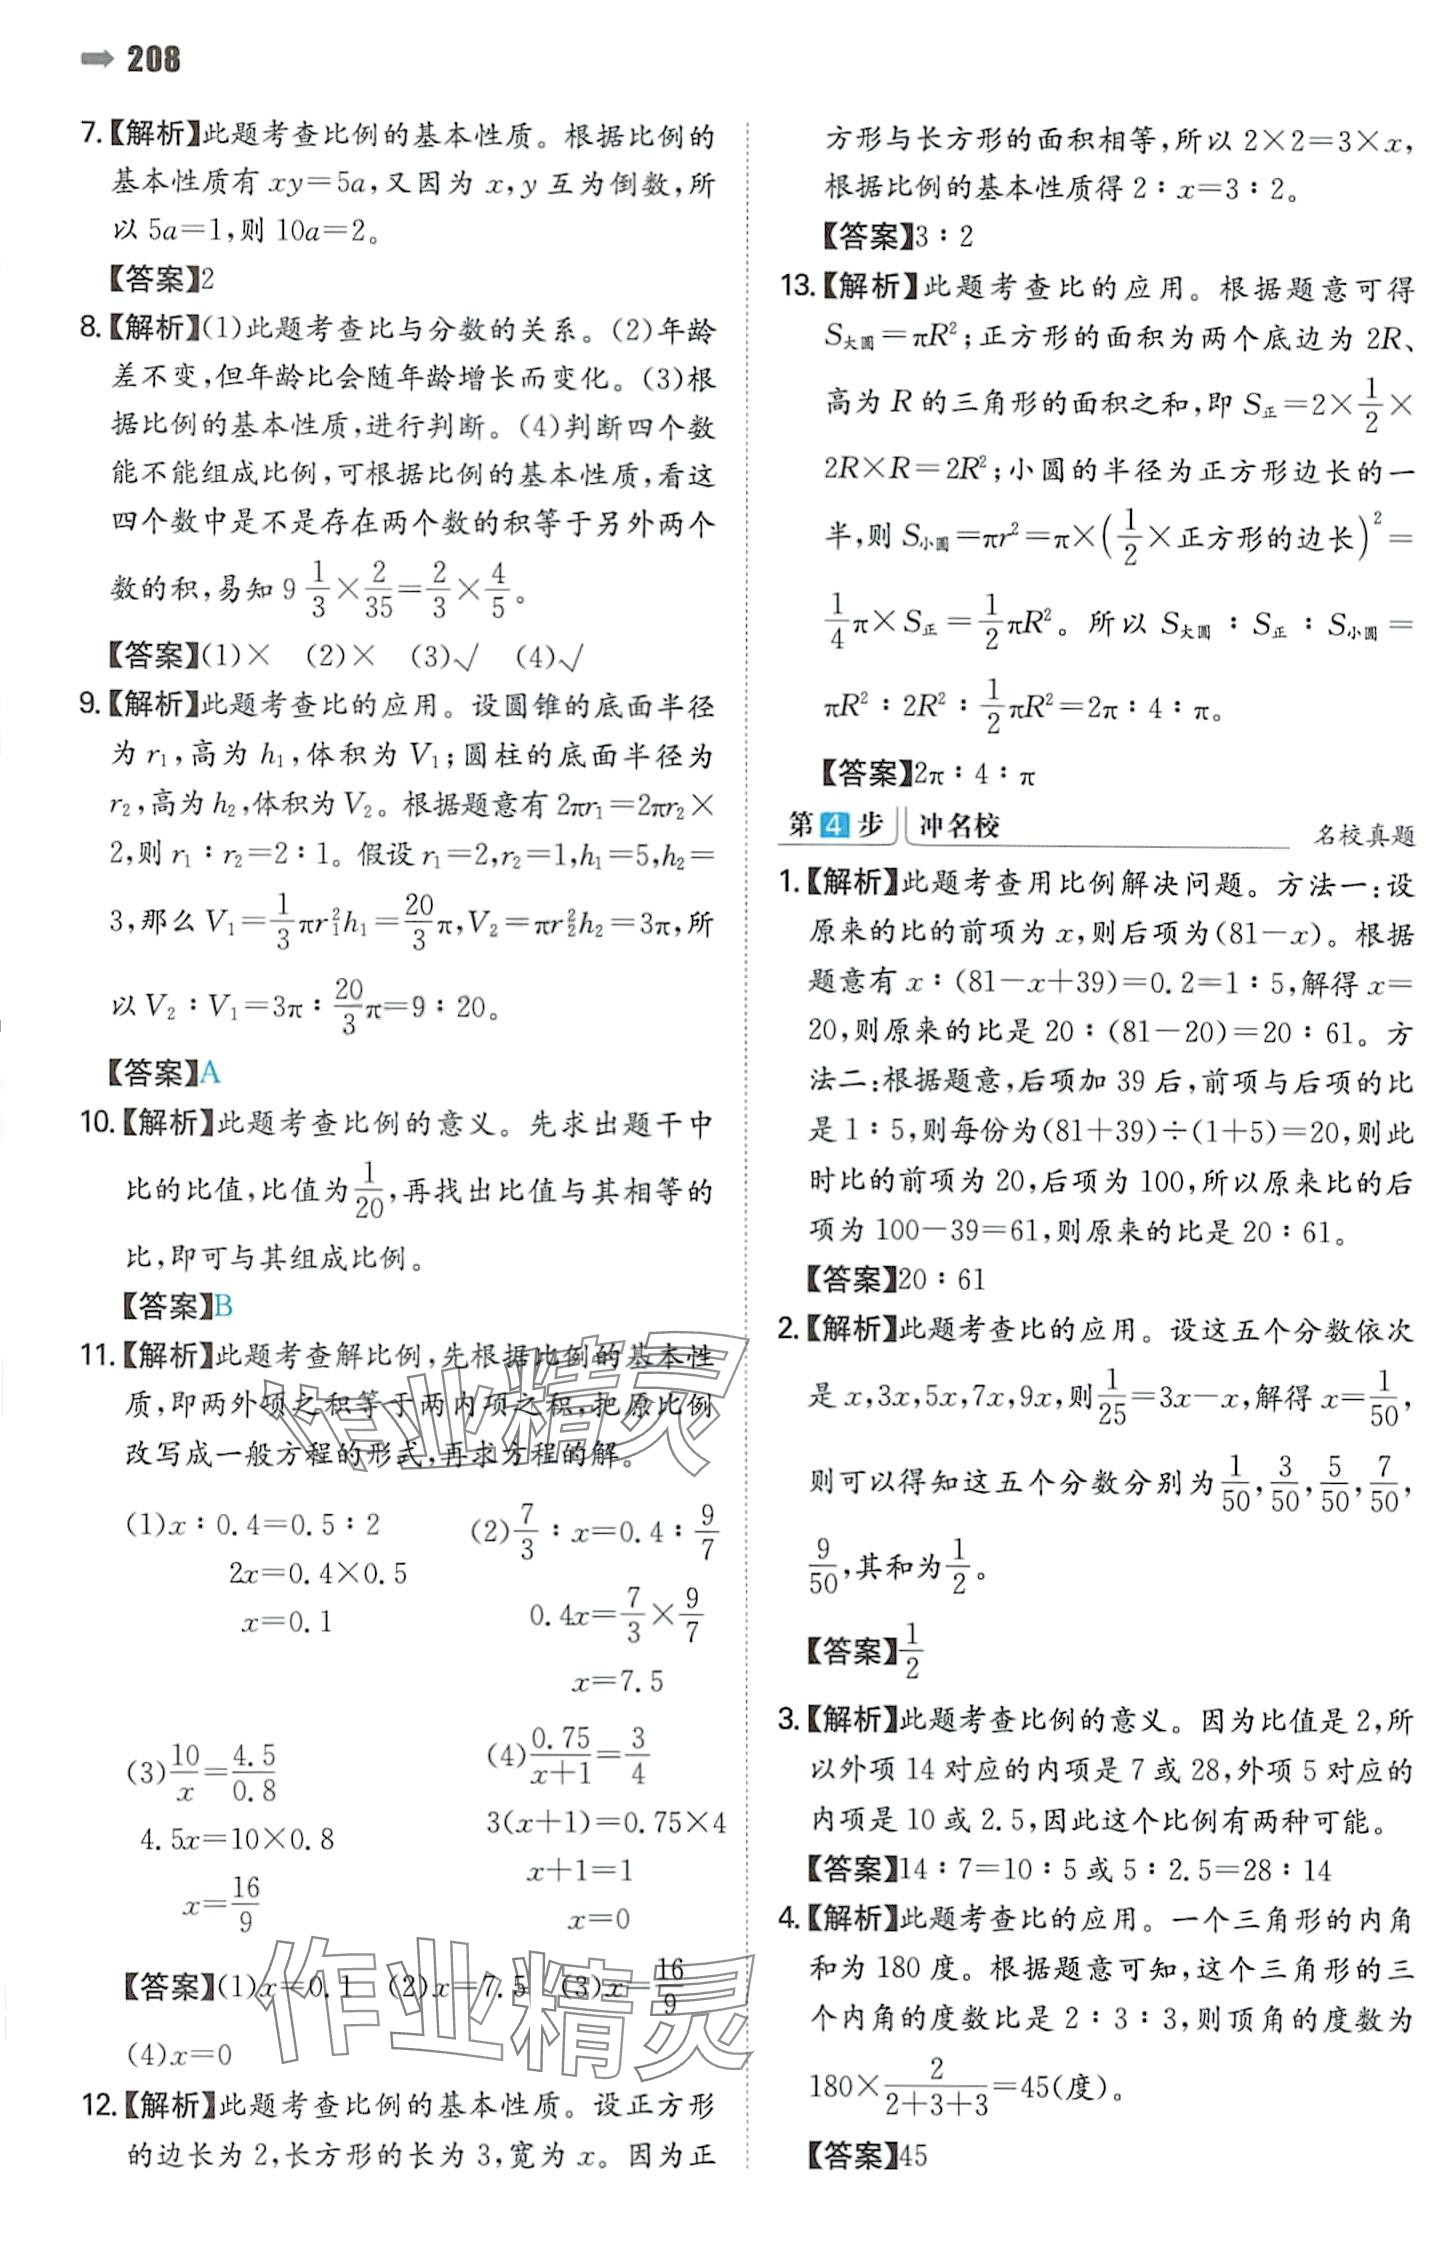 208
7.【解析】此题考查比例的基本性质。根据比例的
基本性质有 xy=5a,又因为 x,y 互为倒数,所
以 5a=1,则 10a=2。
【答案】2
8.【解析】(1)此题考查比与分数的关系。(2)年龄
差不变,但年龄比会随年龄增长而变化。(3)根
据比例的基本性质,进行判断。(4)判断四个数
能不能组成比例,可根据比例的基本性质,看这
四个数中是不是存在两个数的积等于另外两个
数的积,易知 9 1/3×2/35=2/3×4/5。
【答案】(1)× (2)× (3)√ (4)√
9.【解析】此题考查比的应用。设圆锥的底面半径
为 r₁,高为 h₁,体积为 V₁;圆柱的底面半径为
r₂,高为 h₂,体积为 V₂。根据题意有 2πr₁=2πr₂×
2,则 r₁∶r₂=2∶1。假设 r₁=2,r₂=1,h₁=5,h₂=
3,那么 V₁=1/3πr₁²h₁=20/3π,V₂=πr₂²h₂=3π,所
以 V₂∶V₁=3π∶20/3π=9∶20。
【答案】A
10.【解析】此题考查比例的意义。先求出题干中
比的比值,比值为1/20,再找出比值与其相等的
比,即可与其组成比例。
【答案】B
11.【解析】此题考查解比例,先根据比例的基本性
质,即两外项之积等于两内项之积,把原比例
改写成一般方程的形式,再求方程的解。
(1)x∶0.4=0.5∶2
2x=0.4×0.5
x=0.1
(2)7/3∶x=0.4∶9/7
0.4x=7/3×9/7
x=7.5
(3)10/x=4.5/0.8
4.5x=10×0.8
x=16/9
(4)0.75/(x+1)=3/4
3(x+1)=0.75×4
x+1=1
x=0
【答案】(1)x=0.1 (2)x=7.5 (3)x=16/9
(4)x=0
12.【解析】此题考查比例的基本性质。设正方形
的边长为 2,长方形的长为 3,宽为 x。因为正
方形与长方形的面积相等,所以 2×2=3×x,
根据比例的基本性质得 2∶x=3∶2。
【答案】3∶2
13.【解析】此题考查比的应用。根据题意可得
S大圆=πR²;正方形的面积为两个底边为 2R、
高为 R 的三角形的面积之和,即 S正=2×1/2×
2R×R=2R²;小圆的半径为正方形边长的一
半,则 S小圆=πr²=π×(1/2×正方形的边长)²=
1/4π×S正=1/2πR²。所以 S大圆∶S正∶S小圆=
πR²∶2R²∶1/2πR²=2π∶4∶π。
【答案】2π∶4∶π
第4步 冲名校 名校真题
1.【解析】此题考查用比例解决问题。方法一:设
原来的比的前项为 x,则后项为(81-x)。根据
题意有 x∶(81-x+39)=0.2=1∶5,解得 x=
20,则原来的比是 20∶(81-20)=20∶61。方
法二:根据题意,后项加 39 后,前项与后项的比
是 1∶5,则每份为(81+39)÷(1+5)=20,则此
时比的前项为 20,后项为 100,所以原来比的后
项为 100-39=61,则原来的比是 20∶61。
【答案】20∶61
2.【解析】此题考查比的应用。设这五个分数依次
是 x,3x,5x,7x,9x,则1/25=3x-x,解得 x=1/50,
则可以得知这五个分数分别为1/50,3/50,5/50,7/50,
9/50,其和为1/2。
【答案】1/2
3.【解析】此题考查比例的意义。因为比值是 2,所
以外项 14 对应的内项是 7 或 28,外项 5 对应的
内项是 10 或 2.5,因此这个比例有两种可能。
【答案】14∶7=10∶5 或 5∶2.5=28∶14
4.【解析】此题考查比的应用。一个三角形的内角
和为 180 度。根据题意可知,这个三角形的三
个内角的度数比是 2∶3∶3,则顶角的度数为
180×2/(2+3+3)=45(度)。
【答案】45
作业精灵
作业精灵